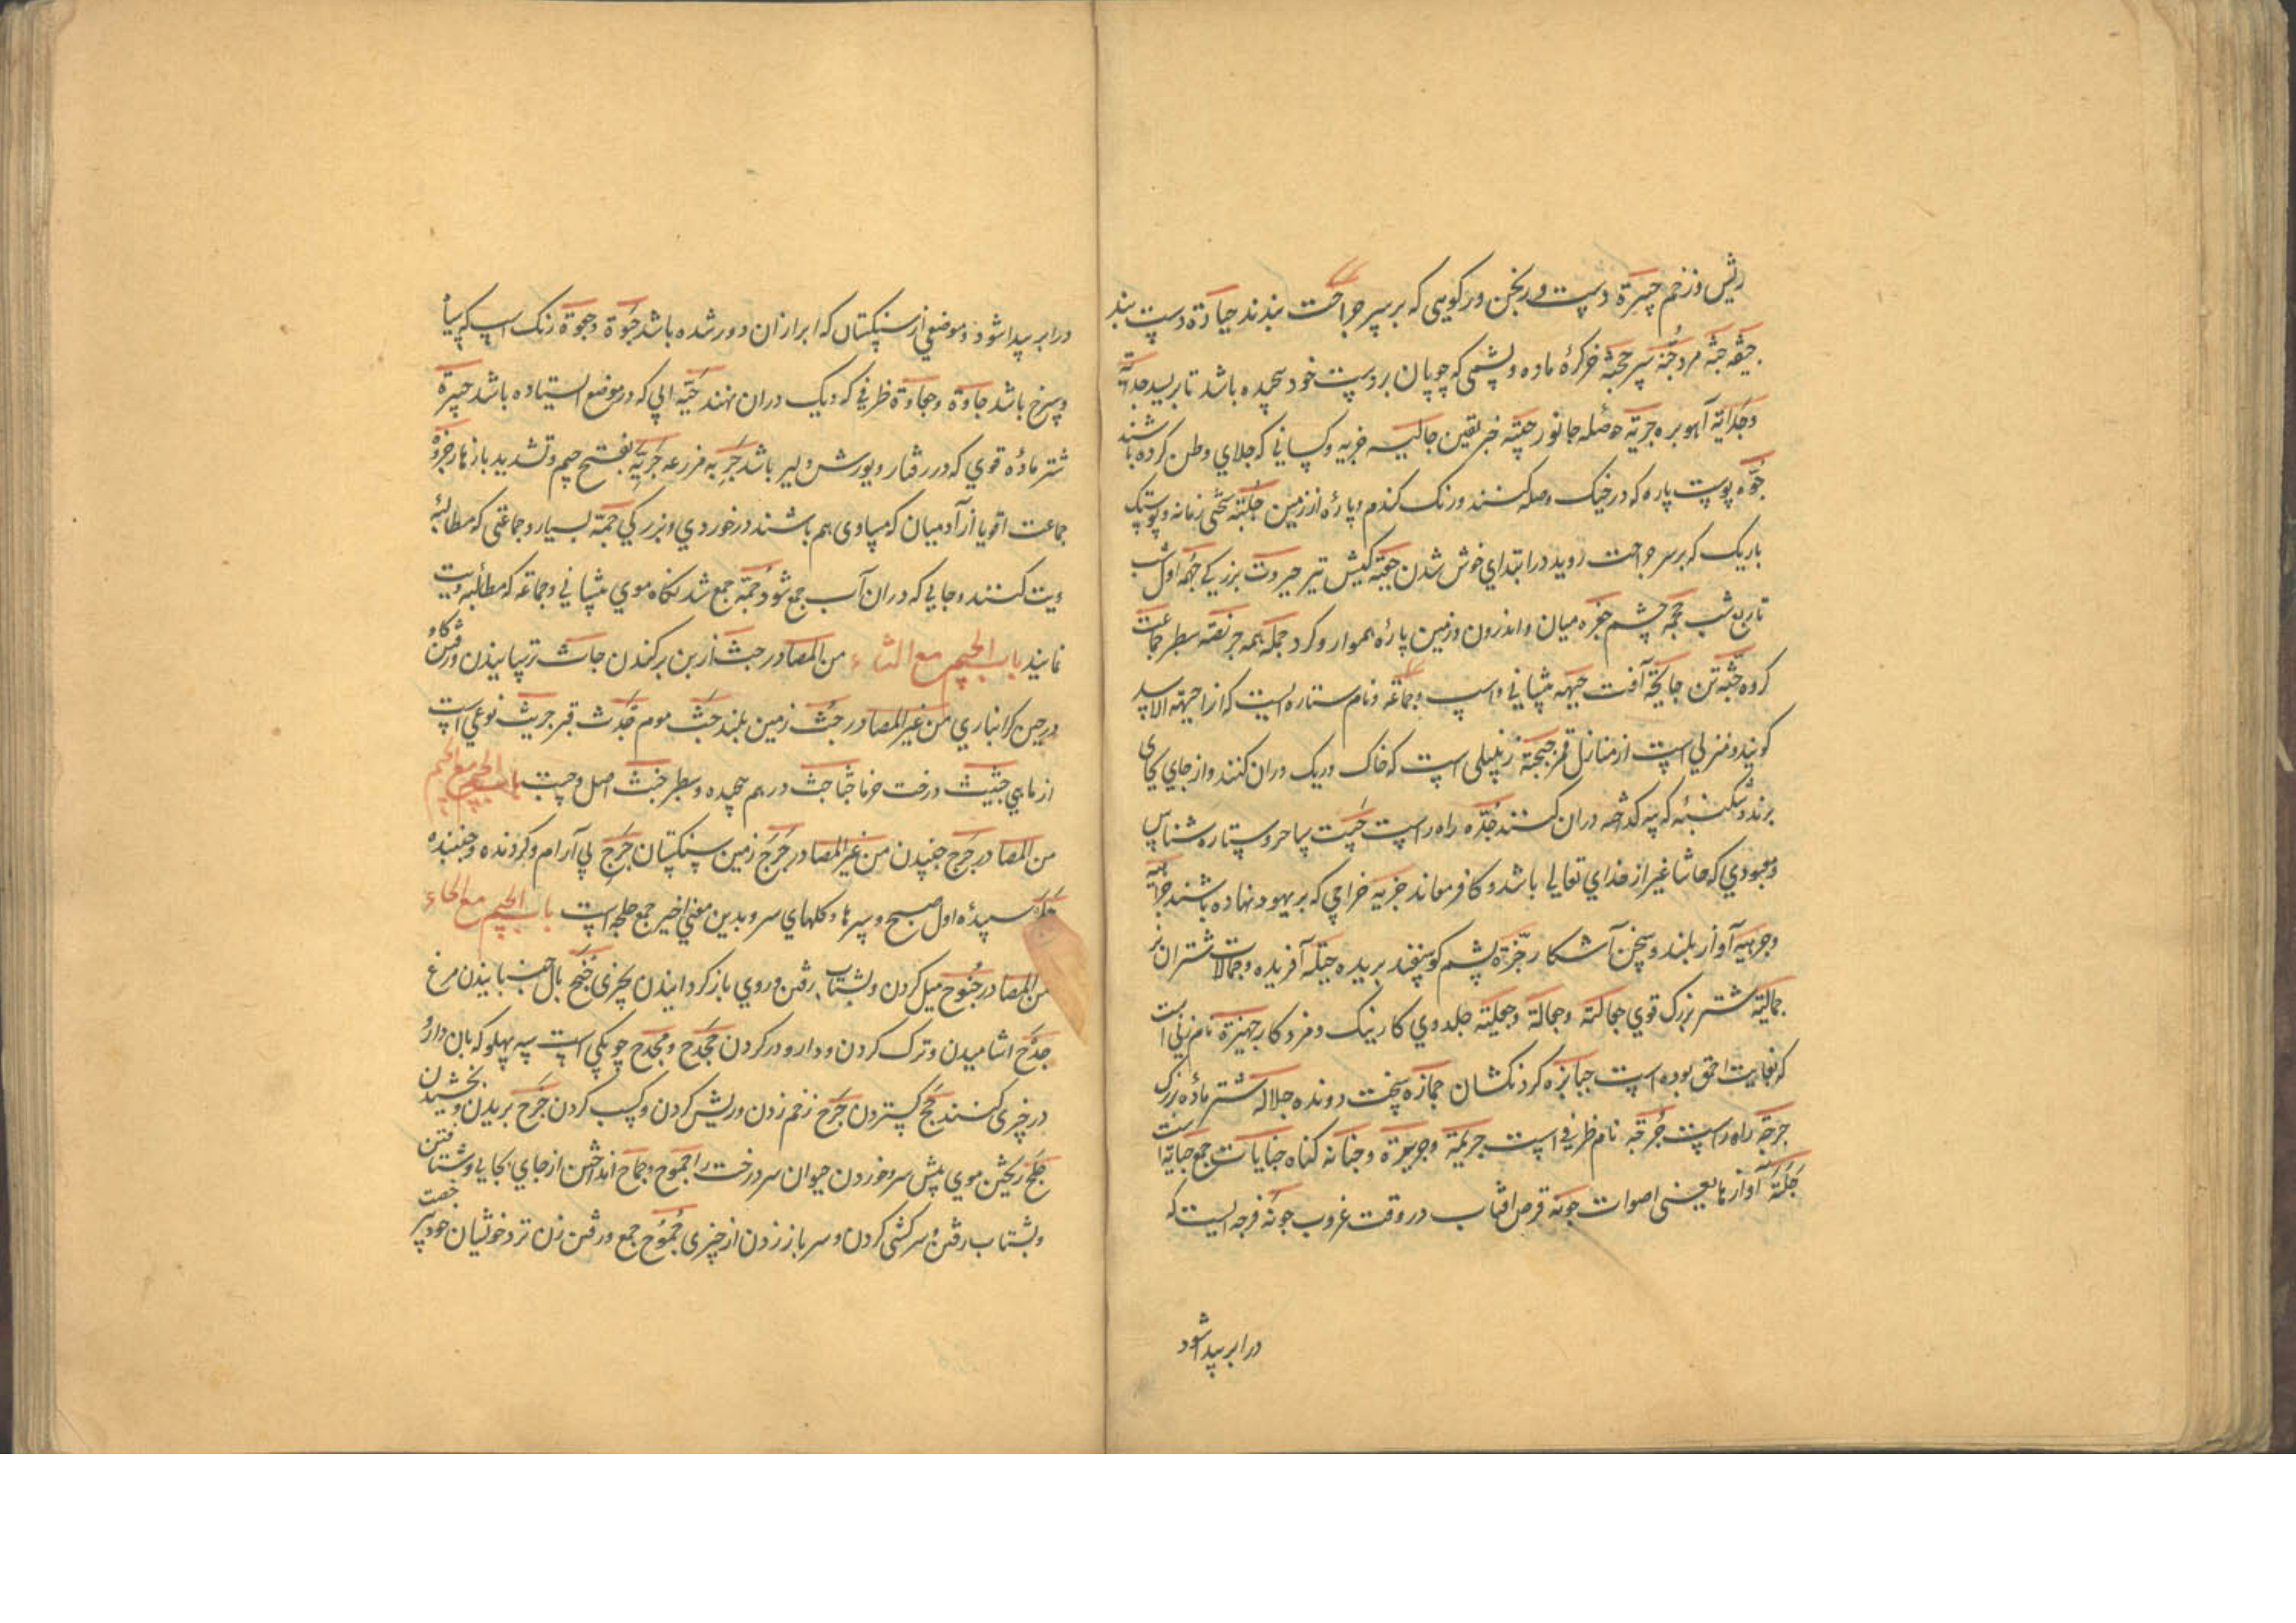 ریش و زخم جبیرة دست ورنجن و رکویی که بر سر جراحت بندند جبارة دست بند
جیفه جثه مرد جنه سپر جحشه خر کرۀ ماده و پشمی که چوپان بر دست خود پیچیده باشد تا بریسد جدیه
و جدایة آهو بره جریه حوصله جانور جفینه خبر یقین جالیه جزیه و کسانی که جلای وطن کرده باشند
جوه پوست پاره که در خیک وصله کنند و رنک کندم و پارۀ از زمین جلبه سختی زمانه و پوستک
باریک که بر سر جراحت روید در ابتدای خوش شدن جعبه کیش تیر جبروت بزرکی جهمه اول شب
تا ربع شب جحمه چشم جفره میان و اندرون و زمین پارۀ هموار و کرد جمله همه جرنفه سطبر جماعت
کروه جثه تن جایحة آفت جبهه پیشانی و اسپ و جماعه و نام ستاره ایست که انرا جبهة الاسد
کویند و منزلی است از منازل قمر جبجبه زنبیلی است که خاک و ریک دران کنند و از جای بجای
برند و شکنبۀ که پیه کداخته دران کنند جده راه راست جبت ساحر و ستاره شناس
و معبودی که حاشا غیر از خدای تعالی باشد و کافر معاند جزیه خراجی که بر یهود نهاده باشند جراهیه
و جرهیه آواز بلند و سخن آشکار جزة پشم کوسفند بریده جبلة آفریده و جمالات شتران نر
جمالیة شتر بزرک قوی جمالته و جمالة و جعلیته جلدوی کار نیک و مزد کار جهیزة نام زنی است
که بغایت احمق بوده است جبابره کردنکشان جمازه سخت دونده جلاله شتر مادۀ بزرک
جرجه راه راست جرقه نام ظرفی است جریمة و جریرة و جنایه کناه جنایات جمع جنایة است
جلبة آوازها یعنی اصوات جونة قرص افتاب در وقت غروب جوبة فرجه ایست که
در ابر پیدا شود
در ابر پیدا شود و موضعی از سنکستان که ابر ازان دور شده باشد جؤة و جؤوة رنک اسپ که سیاه
و سرخ باشد جاوة و جاءوة ظرفی که دیک دران نهند جیه ابی که در موضع ایستاده باشد جسرة
شتر مادۀ قوی که در رفتار و یورش دلیر باشد جربه مزرعه جربّه بفتح جیم و تشدید باز هار جزوة
جماعت اقویا از آدمیان که مساوی هم باشند در خوردی و بزرکی جمه بسیار و جماعتی که مطالبۀ
دیت کنند و جایی که دران آب جمع شود جمة جمع شد نکاه موی پیشانی و جماعه که مطالبه دیت
نمایند باب الجیم مع الثاء من المصادر جث از بن برکندن جاث ترسانیدن و رفتن کاو
در حین کرانباری من غیر المصادر جث زمین بلند جث موم جدث قبر جریث نوعی است
از ماهی جثیث درخت خرما جثاجث در هم پیچیده و سطبر جنث اصل و حسب باب الجیم مع الجیم
من المصادر جرج جنبیدن من غیر المصادر جرج زمین سنکستان جرج بی آرام و کردنده و جنبنده
جلج سپیدۀ اول صبح و سرها و کلهای سر و بدین معنی اخیر جمع جلجه است باب الجیم مع الحاء
من المصادر جنوح میل کردن و بشتاب رفتن و روی باز کردانیدن بچیزی جنح بال جنبانیدن مرغ
جدح اشامیدن و ترک کردن و دارو در کردن مجدح و مجدح چوبکی است سه پهلو که بان دارو
در چیزی کنند جح کستردن جرح زخم زدن و ریش کردن و کسب کردن جزح بریدن و بخشیدن
جلح ریختن موی پیش سر و خوردن حیوان سر درخت را جموح و جماح انداختن از جای بجایی و شتافتن
و بشتاب رفتن و سرکشی کردن و سر باز زدن از چیزی جموح جمع و رفتن زن نزد خویشان خود بی رخصت